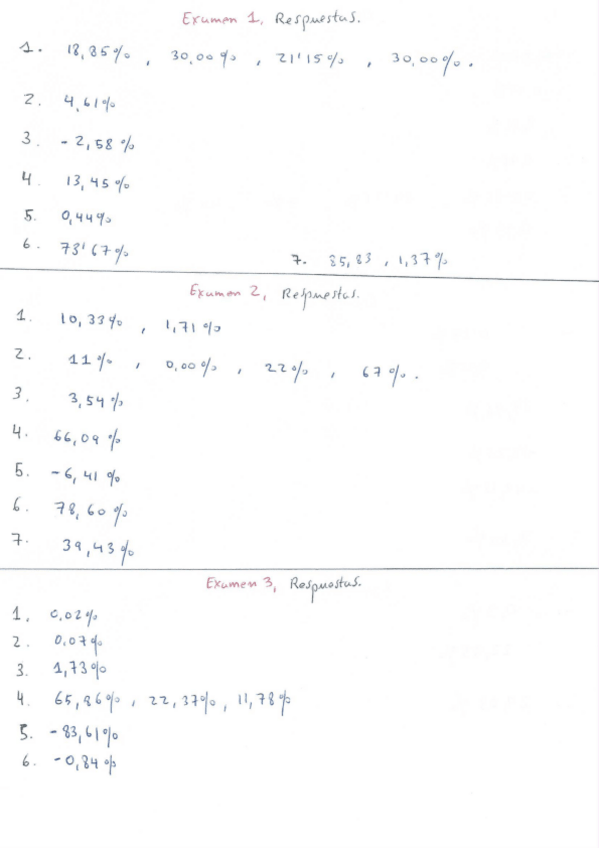 Examen 1, Respuestas.
1. 18,85% , 30,00% , 21'15% , 30,00%.
2. 4,61%
3. -2,58%
4. 13,45%
5. 0,44%
6. 73'67%
7. 85,83 , 1,37%
Examen 2, Respuestas.
1. 10,33% , 1,71%
2. 11% , 0,00% , 22% , 67%.
3. 3,54%
4. 66,09%
5. -6,41%
6. 78,60%
7. 39,43%
Examen 3, Respuestas.
1. 0,02%
2. 0,07%
3. 1,73%
4. 65,86% , 22,37% , 11,78%
5. -83,61%
6. -0,84%